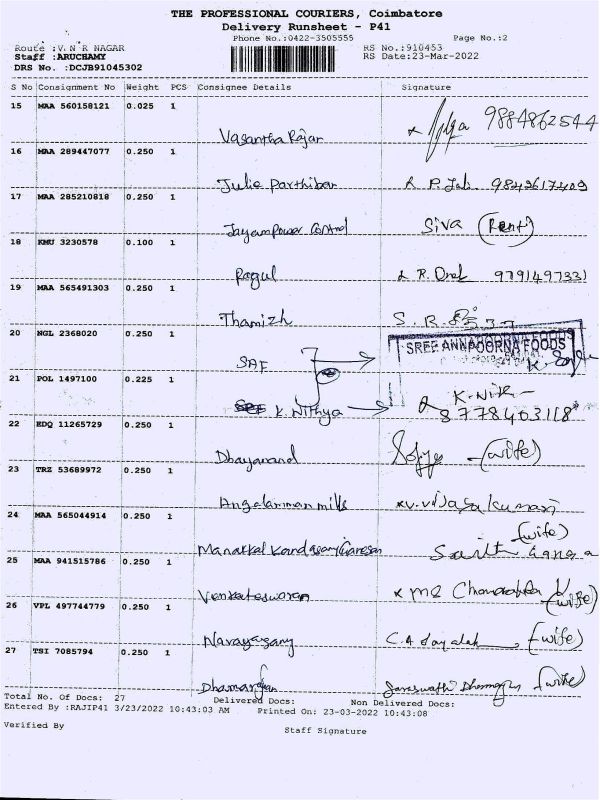 THE PROFESSIONAL COURIERS, Coimbatore
Delivery Runsheet - P41
Phone No.:0422-3505555 Page No.:2
Route :V N R NAGAR RS No.:910453
Staff :ARUCHAMY RS Date:23-Mar-2022
DRS No. :DCJB91045302
S No Consignment No Weight PCS Consignee Details Signature
15 MAA 560158121 0.025 1
Vasantha Rajan 9884862544
16 MAA 289447077 0.250 1
Julie Parthiban 9842617409
17 MAA 285210818 0.250 1
Jayam Power Control Siva (Rent)
18 KMU 3230578 0.100 1
Ragul 9791497331
19 MAA 565491303 0.250 1
Thamizh
20 NGL 2368020 0.250 1
SAF SREE ANNAPOORNA FOODS
21 POL 1497100 0.225 1
K. Nithya 8778403118
22 EDQ 11265729 0.250 1
Dhayanand (wife)
23 TRZ 53689972 0.250 1
Angalamman mills V. Vijaya kumari
24 MAA 565044914 0.250 1
(wife)
25 MAA 941515786 0.250 1
Venkateswaran (wife)
26 VPL 497744779 0.250 1
Narayasamy (wife)
27 TSI 7085794 0.250 1
(wife)
Total No. Of Docs: 27 Delivered Docs: Non Delivered Docs:
Entered By :RAJIP41 3/23/2022 10:43:03 AM Printed On: 23-03-2022 10:43:08
Verified By Staff Signature